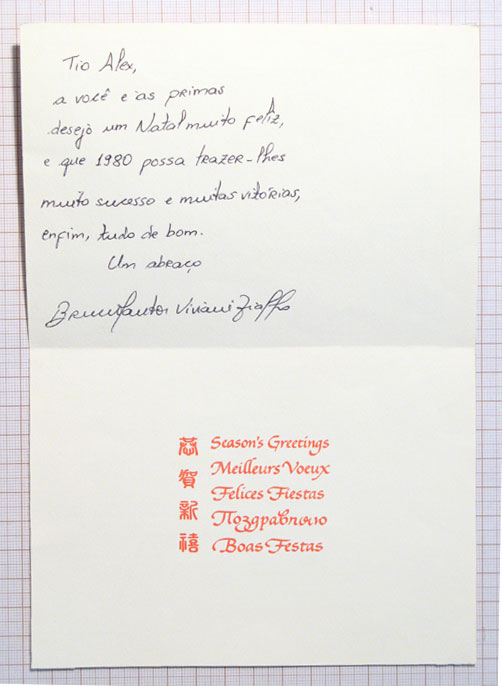 Tio Alex,
a você e as primas
desejo um Natal muito feliz,
e que 1980 possa trazer-lhes
muito sucesso e muitas vitórias,
enfim, tudo de bom.
Um abraço
恭賀新禧
Season's Greetings
Meilleurs Voeux
Felices Fiestas
Поздравляю
Boas Festas